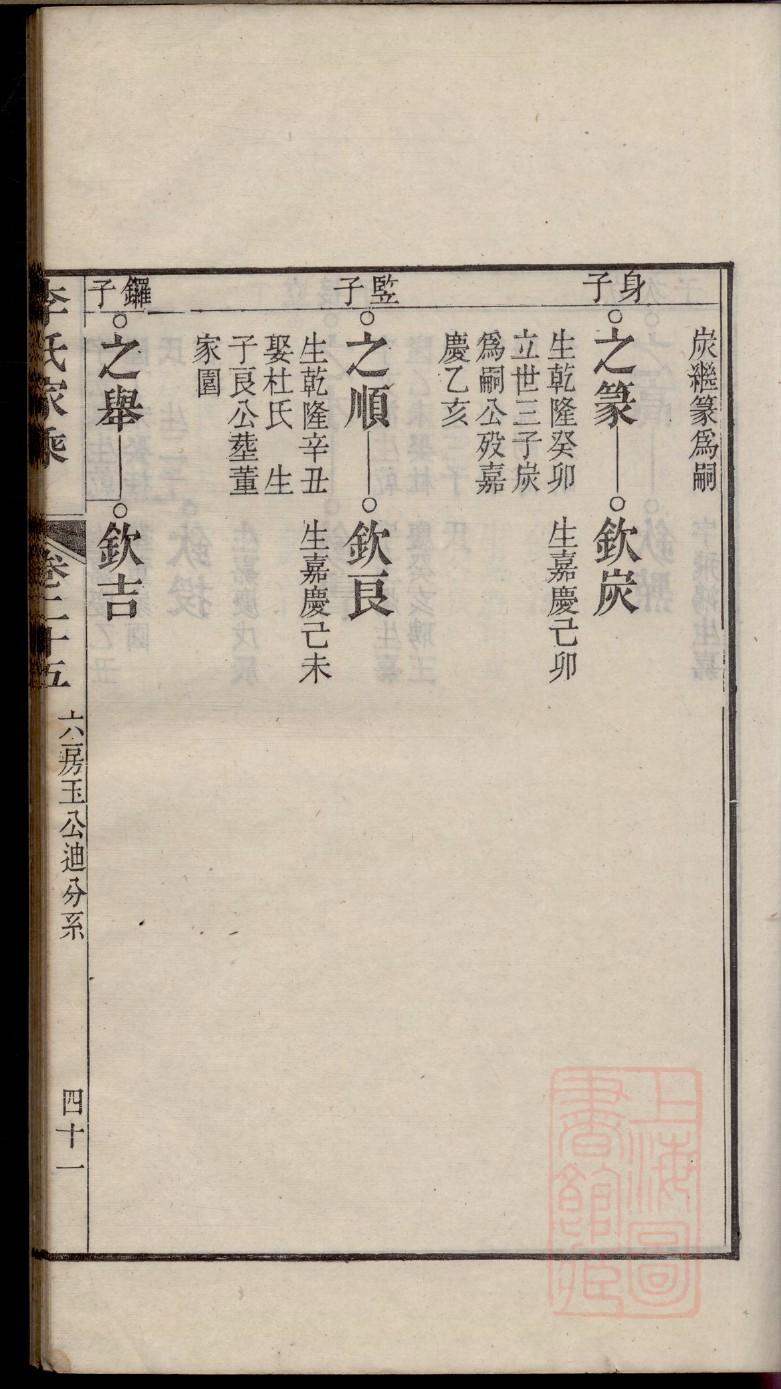 炭繼篆爲嗣
身子
○之篆——○欽炭
生乾隆癸卯
立世三子炭
爲嗣公歿嘉
慶乙亥
生嘉慶己卯
竪子
○之順——○欽良
生乾隆辛丑
娶杜氏　生
子良公塟董
家園
生嘉慶己未
鑼子
○之舉——○欽吉
李氏家乘
卷二十五
六房玉公迪分系
四十一
上海圖書館藏